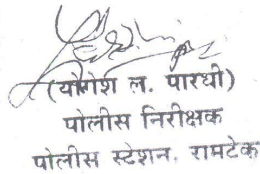 (योगेश ल. पारधी)
पोलीस निरीक्षक
पोलीस स्टेशन. रामटेक